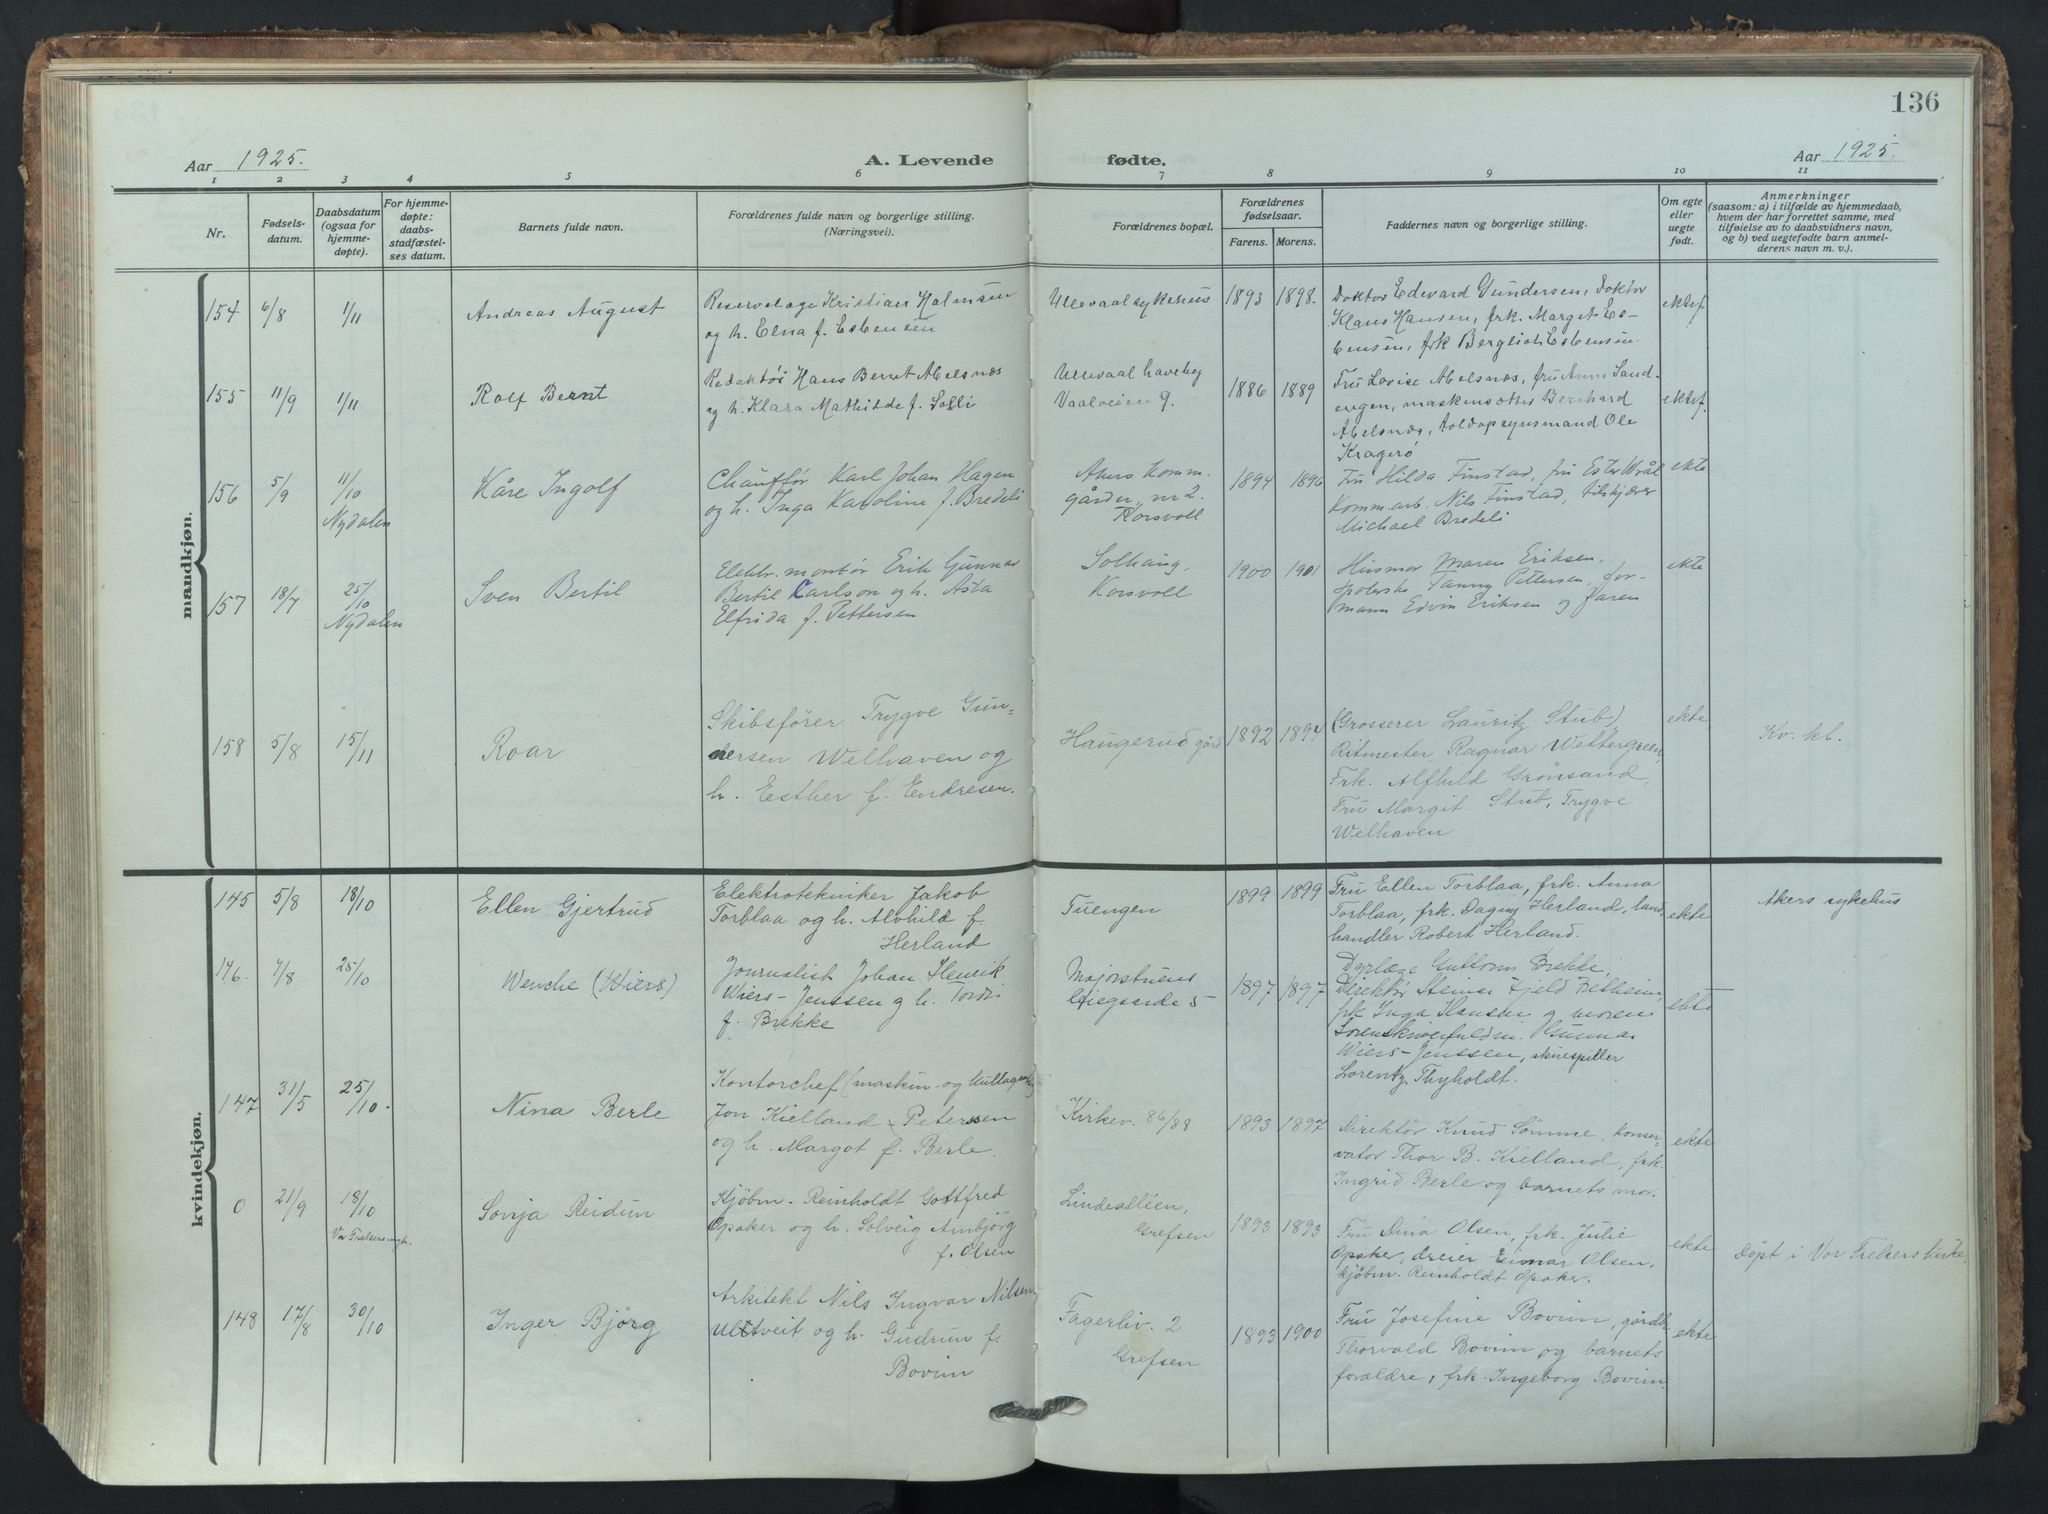 136
Aar 1925.
A. Levende fødte.
Aar 1925.
1 2 3 4 5 6 7 8 9 10 11
Nr.
Fødsels-
datum.
Daabsdatum
(ogsaa for
hjemme-
døpte).
For hjemme-
døpte:
daabs-
stadfæstel-
ses datum.
Barnets fulde navn.
Forældrenes fulde navn og borgerlige stilling.
(Næringsvei).
Forældrenes bopæl.
Forældrenes
fødselsaar.
Farens. Morens.
Faddernes navn og borgerlige stilling.
Om egte
eller
uegte
født.
Anmerkninger
(saasom: a) i tilfælde av hjemmedaab,
hvem der har forrettet samme, med
tilføielse av to daabsvidners navn,
og b) ved uegtefødte barn anmel-
derens navn m. v.).
mandkjøn.
154 6/8 1/11
Andreas August
Reservelæge Kristian Halmsen
og h. Elna f. Esbensen
Ullevaal sykehus
1893 1898.
Doktor Edward Gundersen, Doktor
Klaus Hansen, frk. Margit Es-
bensen, frk Bergliot Esbensen.
ektef.
155 11/9 1/11
Rolf Bernt
Redaktør Hans Bernt Abelsnes
og h. Klara Mathilde f. Solli
Ullevaal haveby
Vaalveien 9.
1886 1889
Fru Lovise Abelsnes, fru Anna Sand-
engen, maskensætter Bernhard
Abelsnes, toldopsynsmand Ole
Kragerø
ektef.
156 5/9 11/10
Nydalen
Kåre Ingolf
Chauffør Karl Johan Hagen
og h. Inga Karoline f. Bredeli
Akers Komm.
gården nr 2.
Korsvoll
1894 1896
Fru Hilda Finstad, fru Ester Wrål
Komm.arb. Nils Finstad, tilskjærer
Michael Bredeli
ekte
157 18/7 25/10
Nydalen
Sven Bertil
Elektr. montør Erik Gunnar
Bertil Carlson og h. Asta
Elfrida f. Pettersen
Solhaug,
Korsvoll
1900 1901
Husmor Maren Eriksen,
spolerske Fanny Pettersen, for-
mann Edvin Eriksen og faren
ekte
158 5/8 15/11
Roar
Skibsfører Trygve Gun-
nersen Welhaven og
h. Esther f. Endresen.
Haugerud gård
1892 1894
(Grosserer Lauritz Stub)
Ritmester Ragnar Wettergreen,
Frk. Alfhild Grönsand,
Fru Margit Stub, Trygve
Welhaven
ekte
Kv. kl.
kvindekjøn.
145 5/8 18/10
Ellen Gjertrud
Elektrotekniker Jakob
Torblaa og h. Alvhild f.
Herland
Tuengen
1899 1899
Fru Ellen Torblaa, frk. Anna
Torblaa, frk. Dagny Herland, land
handler Robert Herland.
ekte
Akers sykehus
146. 7/8 25/10
Wenche (Wiers)
Journalist Johan Henrik
Wiers-Jenssen og h. Tordis
f. Brekke
Majorstuens
1897 1897
Dyrlæge Guttorm Brekke,
Direktør Steinar Fjeld Fretheim,
frk Inga Hansen og moren
Gunnar
Wiers-Jenssen, skuespiller
Lorentz Thyholdt.
ekte
147 31/5 25/10.
Nina Berle
Kontorchef (maskin- og
Jon Kielland-Petersen
og h. Margot f. Berle.
Kirkev. 86/88
1893 1897
Direktør Knud Sömme, konser-
vator Thor B. Kielland, frk.
Ingrid Berle og barnets mor.
ekte
0 21/9 18/10
Sonja Reidun
Kjöbm. Reinholdt Gottfred
Opaker og h. Solveig Ambjörg
f. Olsen
Lindealléen,
Grefsen
1893 1893
Fru Dina Olsen, frk. Julie
Opaker, dreier Einar Olsen,
kjöbm. Reinholdt Opaker.
ekte
døpt i Vor Frelsers kirke.
148 17/8 30/10
Inger Björg
Arkitekt Nils Ingvar Nilsen
Ultveit og h. Gudrun f.
Bovim
Fagerliv. 2
Grefsen
1893 1900
Fru Josefine Bovim, gårdb.
Thorvald Bovim og barnets
forældre, frk. Ingeborg Bovim.
ekte